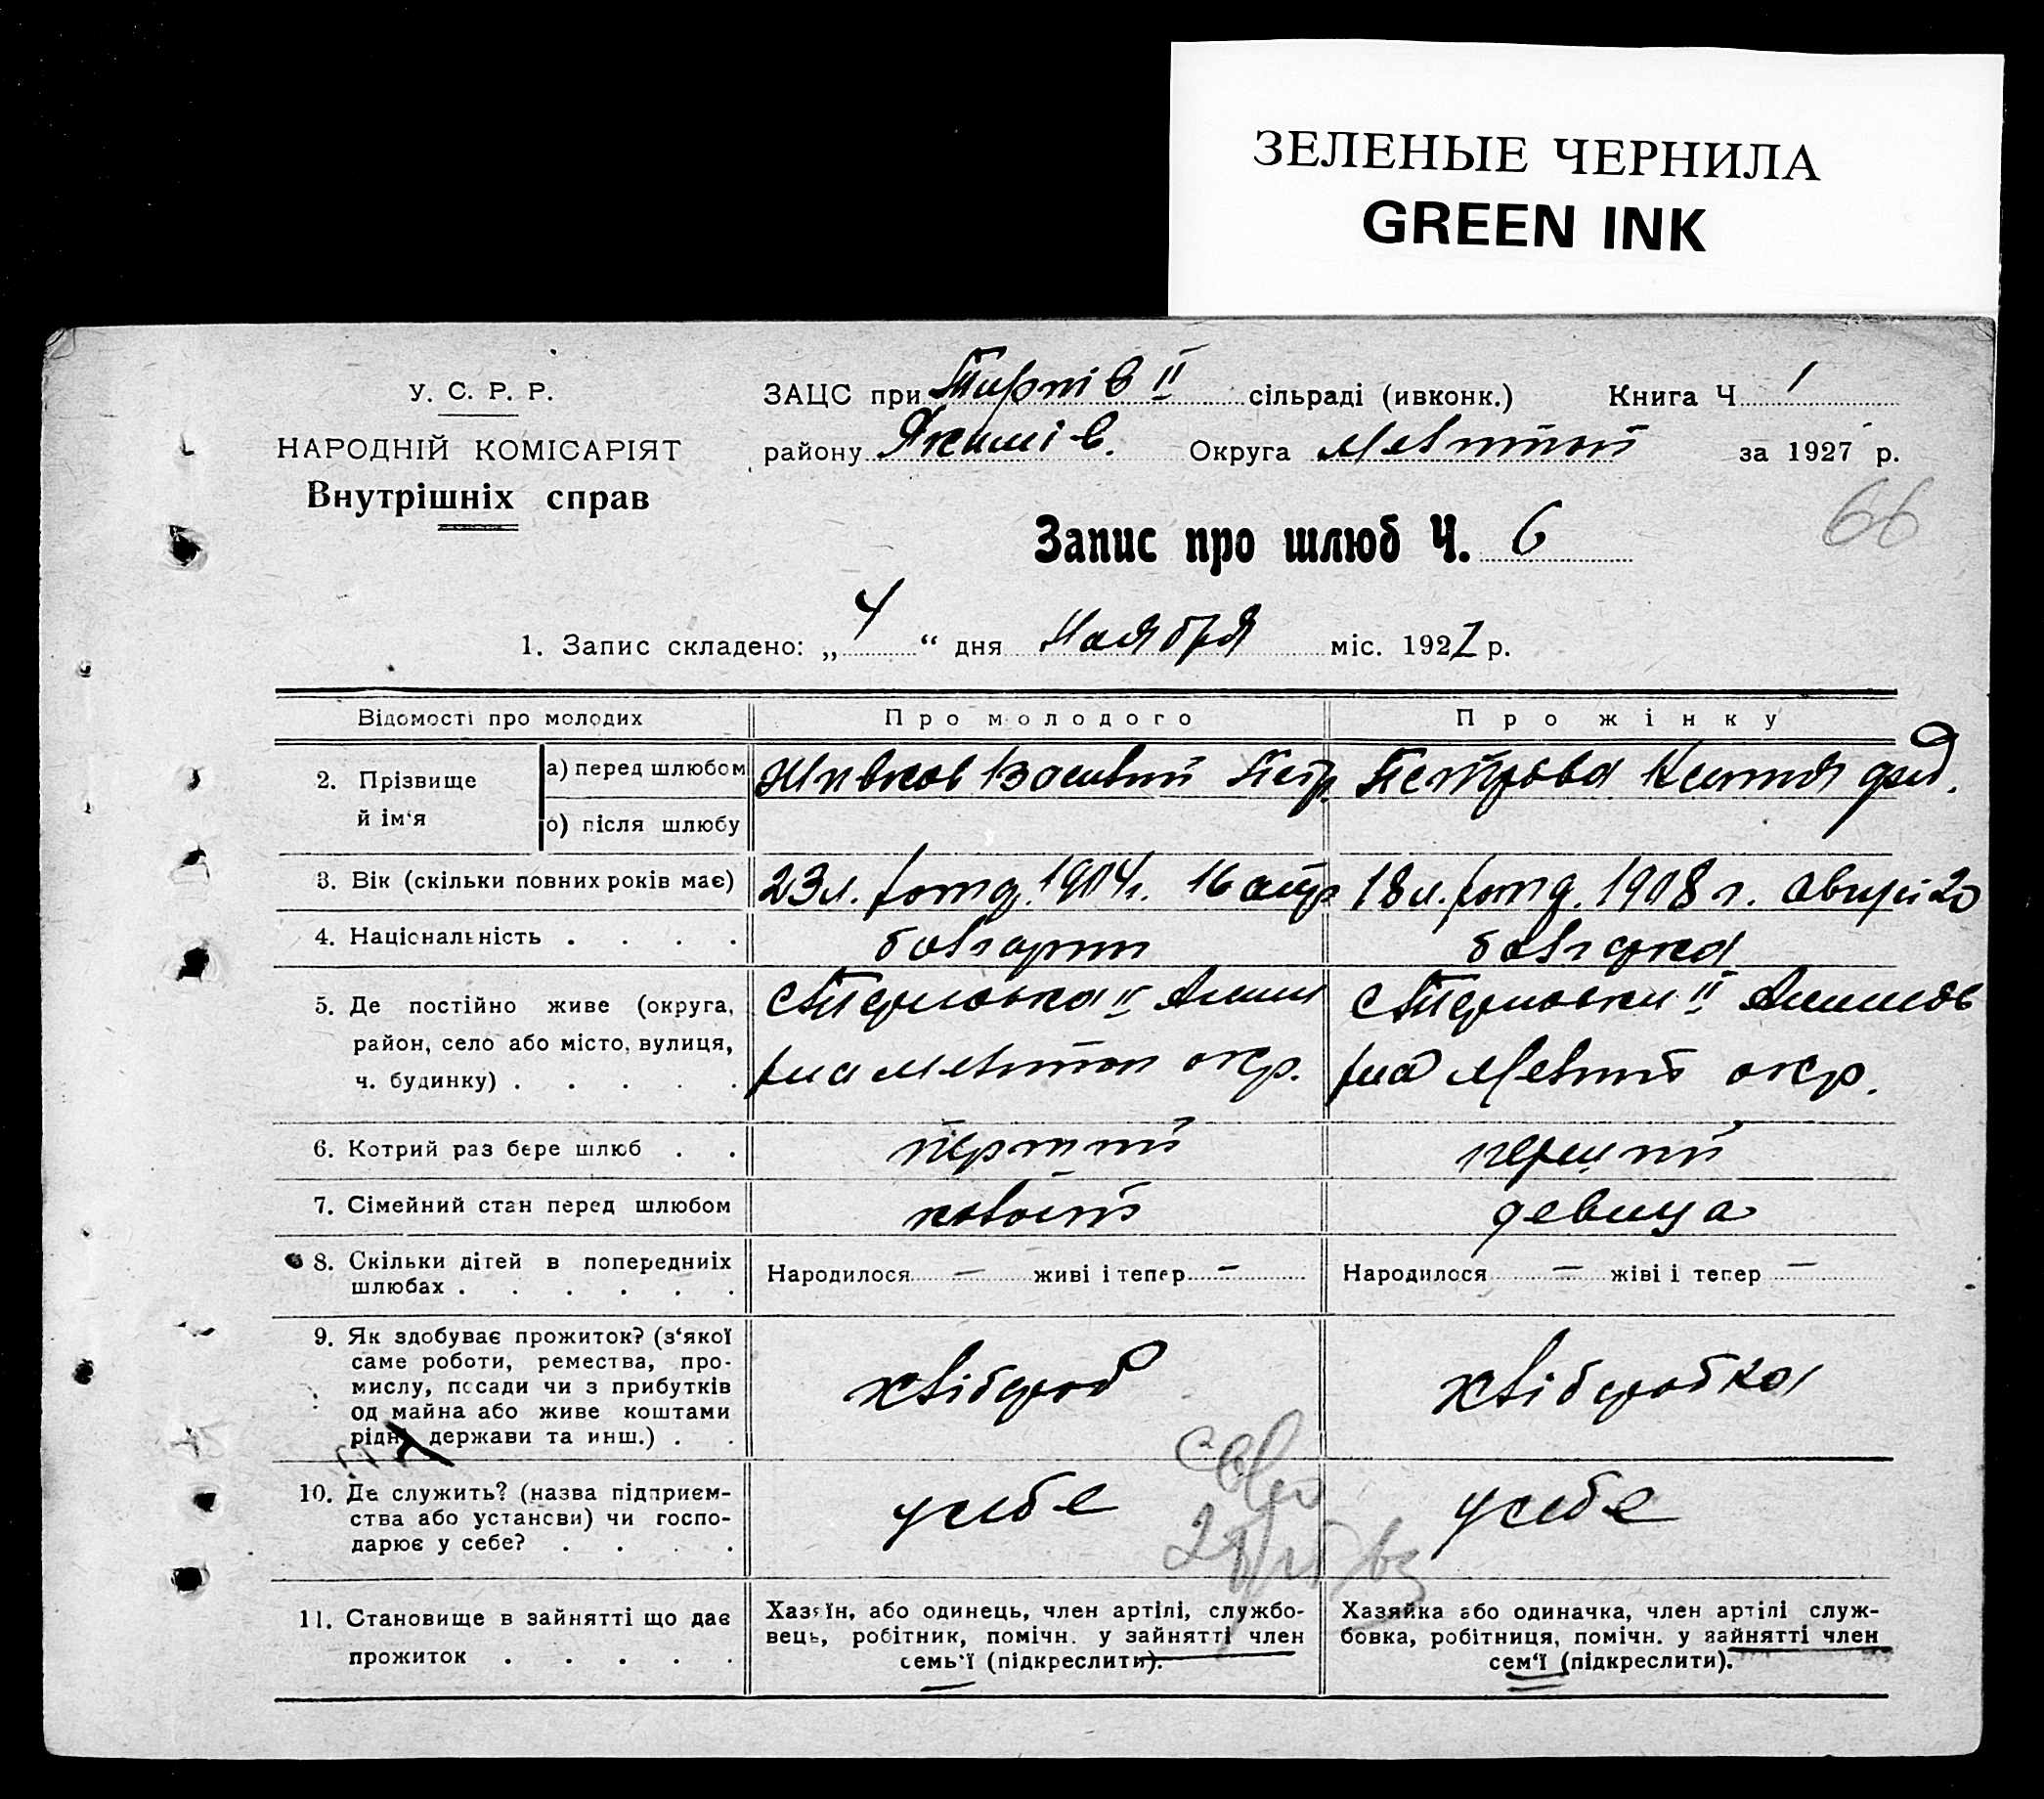 ЗЕЛЕНЫЕ ЧЕРНИЛА
GREEN INK
У. С. Р. Р.
НАРОДНІЙ КОМІСАРІЯТ
Внутрішніх справ
ЗАЦС при Тирнів II сільраді (ивконк.) Книга Ч 1
району Якимів. Округа Меліт за 1927 р.
66
Запис про шлюб Ч. 6
1. Запис складено: „ 4 “ дня Ноября міс. 1927 р.
Відомості про молодих Про молодого Про жінку
2. Прізвище й ім‘я
а) перед шлюбом Живков Василий Петр. Петрова Ксения
о) після шлюбу
3. Вік (скільки повних років має) 23 л. 1904 г. 16 18 л. 1908 г. 20
4. Національність . . . . болгарин болгарка
5. Де постійно живе (округа,
район, село або місто, вулиця,
ч. будинку) . . . . .
с Терновка II Акими с Терновки II Акимов
рна Мелитоп окр. рна Мелит окр.
6. Котрий раз бере шлюб . . первий первий
7. Сімейний стан перед шлюбом холост девица
8. Скільки дітей в попередниіх
шлюбах . . . . . .
Народилося — живі і тепер — Народилося — жіві і тепер —
9. Як здобуває прожиток? (з‘якої
саме роботи, ремества, про-
мислу, посади чи з прибутків
од майна або живе коштами
рідні держави та инш.) . .
хлібороб хліборобка
10. Де служить? (назва підприєм-
ства або установи) чи госпо-
дарює у себе? . . . .
у себе у себе
11. Становище в зайнятті що дає
прожиток . . . . .
Хазяїн, або одинець, член артілі, службо-
вець, робітник, помічн. у зайнятті член
семь‘ї (підкреслити).
Хазяйка або одиначка, член артілі служ-
бовка, робітниця, помічн. у зайнятті член
сем‘ї (підкреслити).